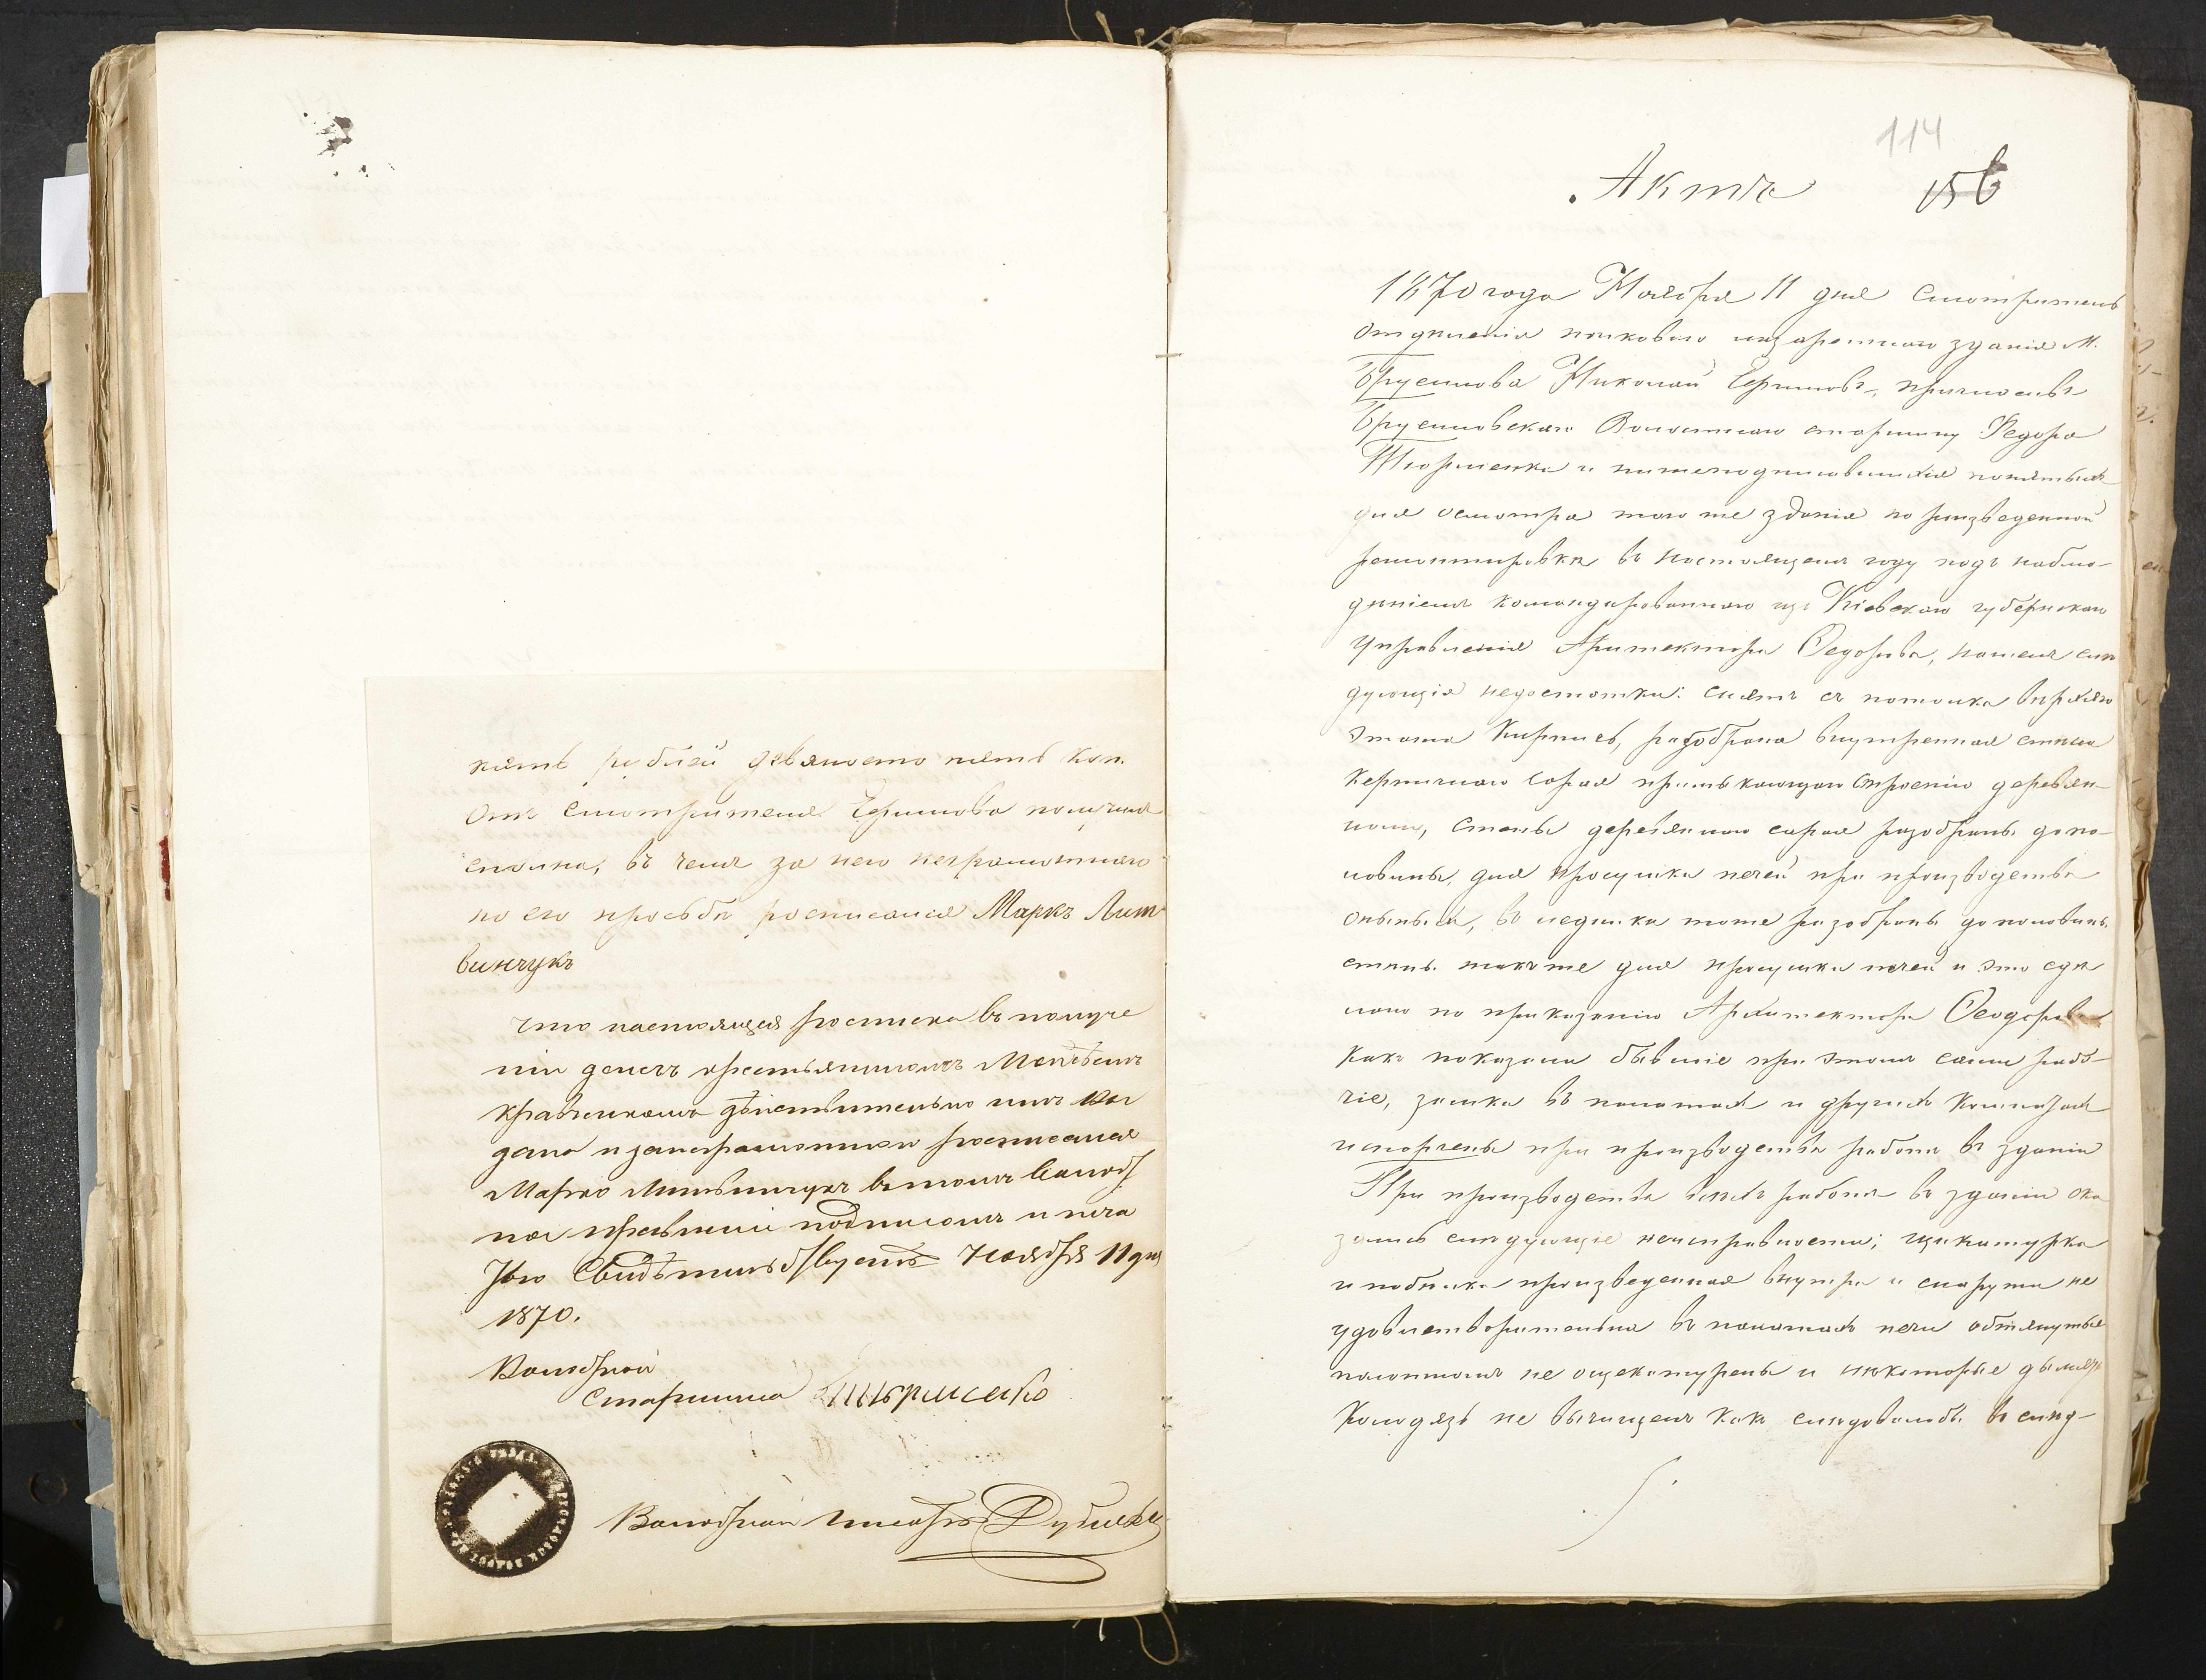 пять рублей девяносто пять коп.
отъ смотрителя Чернилова получилъ
сполна, въ чемъ за него неграмотнаго
по его просьбѣ росписался Маркъ Лит
винчукъ
что настоящая росписка въ получе
ніи денегъ крестьяниномъ
дѣйствительно имъ вы
дана и за неграмотнаго росписался
Марко Литвинчукъ въ томъ Волост
ное правленіе подписомъ и печа
тью Свидѣтельствуетъ Ноября 11 дня
1870.
Волостной
Старшина
Волостной писарь
114
Актъ 156
1870 года Ноября 11 дня Смотритель
отдѣленія полковаго лазаретнаго зданія М.
Брусилова Николай пригласивъ
Брусиловскаго Волостнаго старшину Федора
и нижеподписавшихся понятыхъ
для осмотра того же зданія по произведенной
ремонтировкѣ въ настоящемъ году подъ наблю-
дѣніемъ командированнаго изъ Кіевскаго губернскаго
Управленія Архитектора Федорова, нашелъ слѣ
дующія недостатки: снятъ съ потолка верхняго
этажа Кирпичъ, разобрана внутренная стѣна
керпичнаго сарая примыкающаго строенію деревян-
ному, стѣны деревяннаго сарая разобраны до по-
ловины, для просушки печей при производствѣ
оныхъ, въ ледника тоже разобраны до половины
стѣны также для просушки печей и это сдѣ
лано по приказанію Архитектора Феодорова
какъ показали бывшіе при этомъ сами рабо-
чіе, замки въ палатахъ и другихъ комнатахъ
испорчены при производствѣ работъ въ зданіи
При производствѣ всѣхъ работъ въ зданіи ока
зались слѣдующіе неисправности; щикатурка
и побѣлка произведенная внутри и снаружи не
удовлетворительна въ палатахъ печи обтянутые
полотномъ не ощекатурены и нѣкоторые дымятъ
Колодязь не вычищенъ какъ слѣдовалобы въ слѣд-